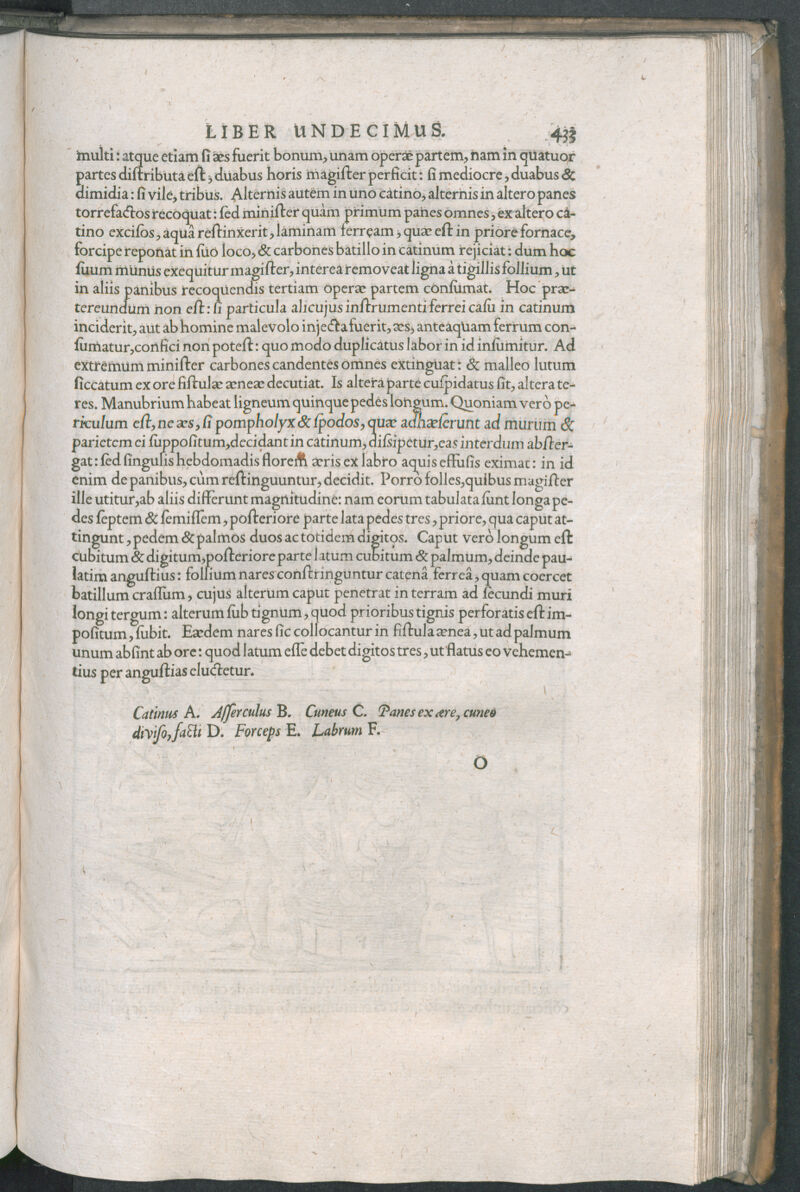 LIBER UNDECIMUS. 433
multi: atque etiam ſi æs fuerit bonum, unam operæ partem, nam in quatuor
partes diſtributa eſt, duabus horis magiſter perficit: ſi mediocre, duabus &
dimidia: ſi vile, tribus. Alternis autem in uno catino, alternis in altero panes
torrefactos recoquat: ſed miniſter quàm primum panes omnes, ex altero ca-
tino exciſos, aquâ reſtinxerit, laminam ferream, quæ eſt in priore fornace,
forcipe reponat in ſuo loco, & carbones batillo in catinum rejiciat: dum hoc
ſuum munus exequitur magiſter, interea removeat ligna à tigillis follium, ut
in aliis panibus recoquendis tertiam operæ partem conſumat. Hoc præ-
tereundum non eſt: ſi particula alicujus inſtrumenti ferrei caſu in catinum
inciderit, aut ab homine malevolo injecta fuerit, æs, anteaquam ferrum con-
ſumatur, confici non poteſt: quo modo duplicatus labor in id inſumitur. Ad
extremum miniſter carbones candentes omnes extinguat: & malleo lutum
ſiccatum ex ore fiſtulæ æneæ decutiat. Is altera parte cuſpidatus ſit, altera te-
res. Manubrium habeat ligneum quinque pedes longum. Quoniam verò pe-
riculum eſt, ne æs, ſi pompholyx & ſpodos, quæ adhæſerunt ad murum &
parietem ei ſuppoſitum, decidant in catinum, diſsipetur, eas interdum abſter-
gat: ſed ſingulis hebdomadis florem æris ex labro aquis effuſis eximat: in id
enim de panibus, cùm reſtinguuntur, decidit. Porrò folles, quibus magiſter
ille utitur, ab aliis differunt magnitudine: nam eorum tabulata ſunt longa pe-
des ſeptem & ſemiſſem, poſteriore parte lata pedes tres, priore, qua caput at-
tingunt, pedem & palmos duos ac totidem digitos. Caput verò longum eſt
cubitum & digitum, poſteriore parte latum cubitum & palmum, deinde pau-
latim anguſtius: follium nares conſtringuntur catenâ ferreâ, quam coercet
batillum craſſum, cujus alterum caput penetrat in terram ad ſecundi muri
longi tergum: alterum ſub tignum, quod prioribus tignis perforatis eſt im-
poſitum, ſubit. Eædem nares ſic collocantur in fiſtula ænea, ut ad palmum
unum abſint ab ore: quod latum eſſe debet digitos tres, ut flatus eo vehemen-
tius per anguſtias eluctetur.
Catinus A. Aſſerculus B. Cuneus C. Panes ex ære, cuneo
diviſo, facti D. Forceps E. Labrum F.
O